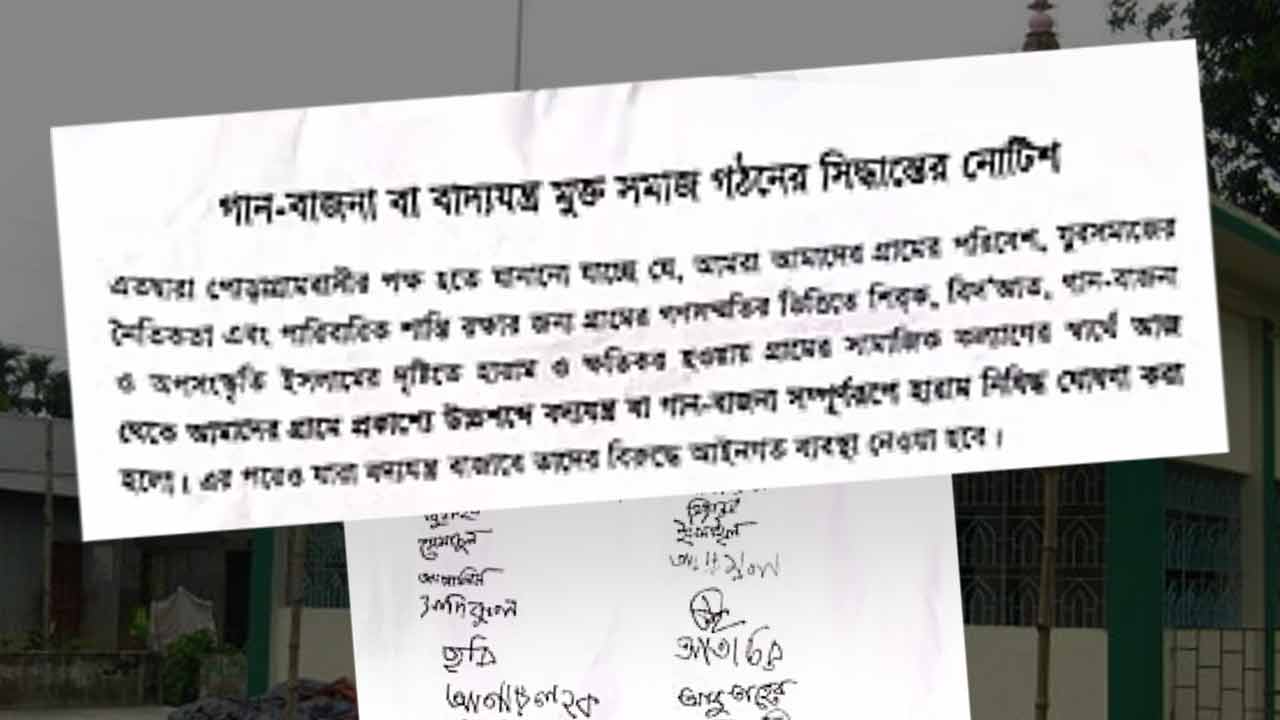 গান-বাজনা বা বাদ্যযন্ত্র মুক্ত সমাজ গঠনের সিদ্ধান্তের নোটিশ
এতদ্বারা পোড়াগ্রামবাসীর পক্ষ হতে জানানো যাচ্ছে যে, আমরা আমাদের গ্রামের পরিবেশ, যুবসমাজের
নৈতিকতা এবং পারিবারিক শান্তি রক্ষার জন্য গ্রামের গণসম্মতির ভিত্তিতে শিরক, বিদ'আত, গান-বাজনা
ও অপসংস্কৃতি ইসলামের দৃষ্টিতে হারাম ও ক্ষতিকর হওয়ায় গ্রামের সামাজিক কল্যাণের স্বার্থে আজ
থেকে আমাদের গ্রামে প্রকাশ্যে উচ্চশব্দে বাদ্যযন্ত্র বা গান-বাজনা সম্পূর্ণরূপে হারাম নিষিদ্ধ ঘোষণা করা
হলো। এর পরেও যারা বাদ্যযন্ত্র বাজাবে তাদের বিরুদ্ধে আইনগত ব্যবস্থা নেওয়া হবে।
ইসমাইল
ছবি